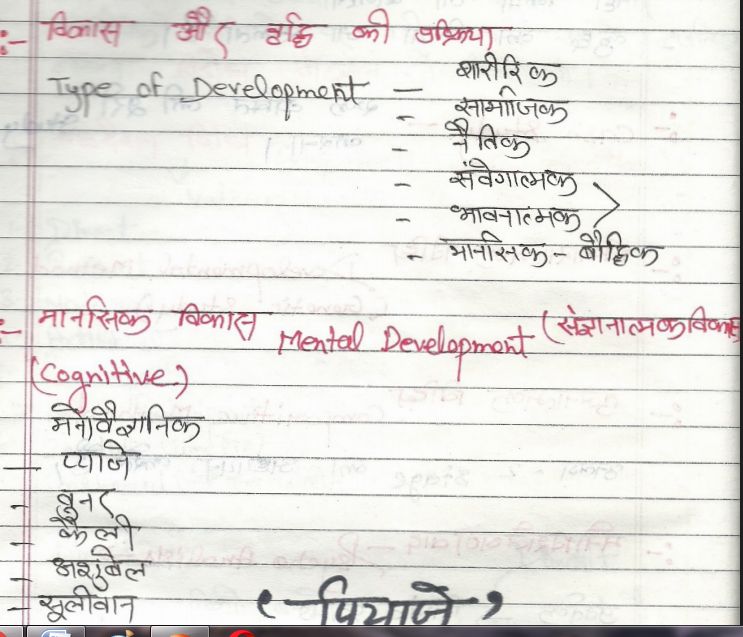 :- विकास और वृद्धि की प्रक्रिया
Type of Development - शारीरिक
- सामाजिक
- नैतिक
- संवेगात्मक
- भावनात्मक
- मानसिक - बौद्धिक
:- मानसिक विकास Mental Development (संज्ञानात्मक विकास
(Cognitive)
मनोवैज्ञानिक
- प्याजे
- ब्रुनर
- कैली
- अशुबेल
- सूलीवान
( पियाजे )